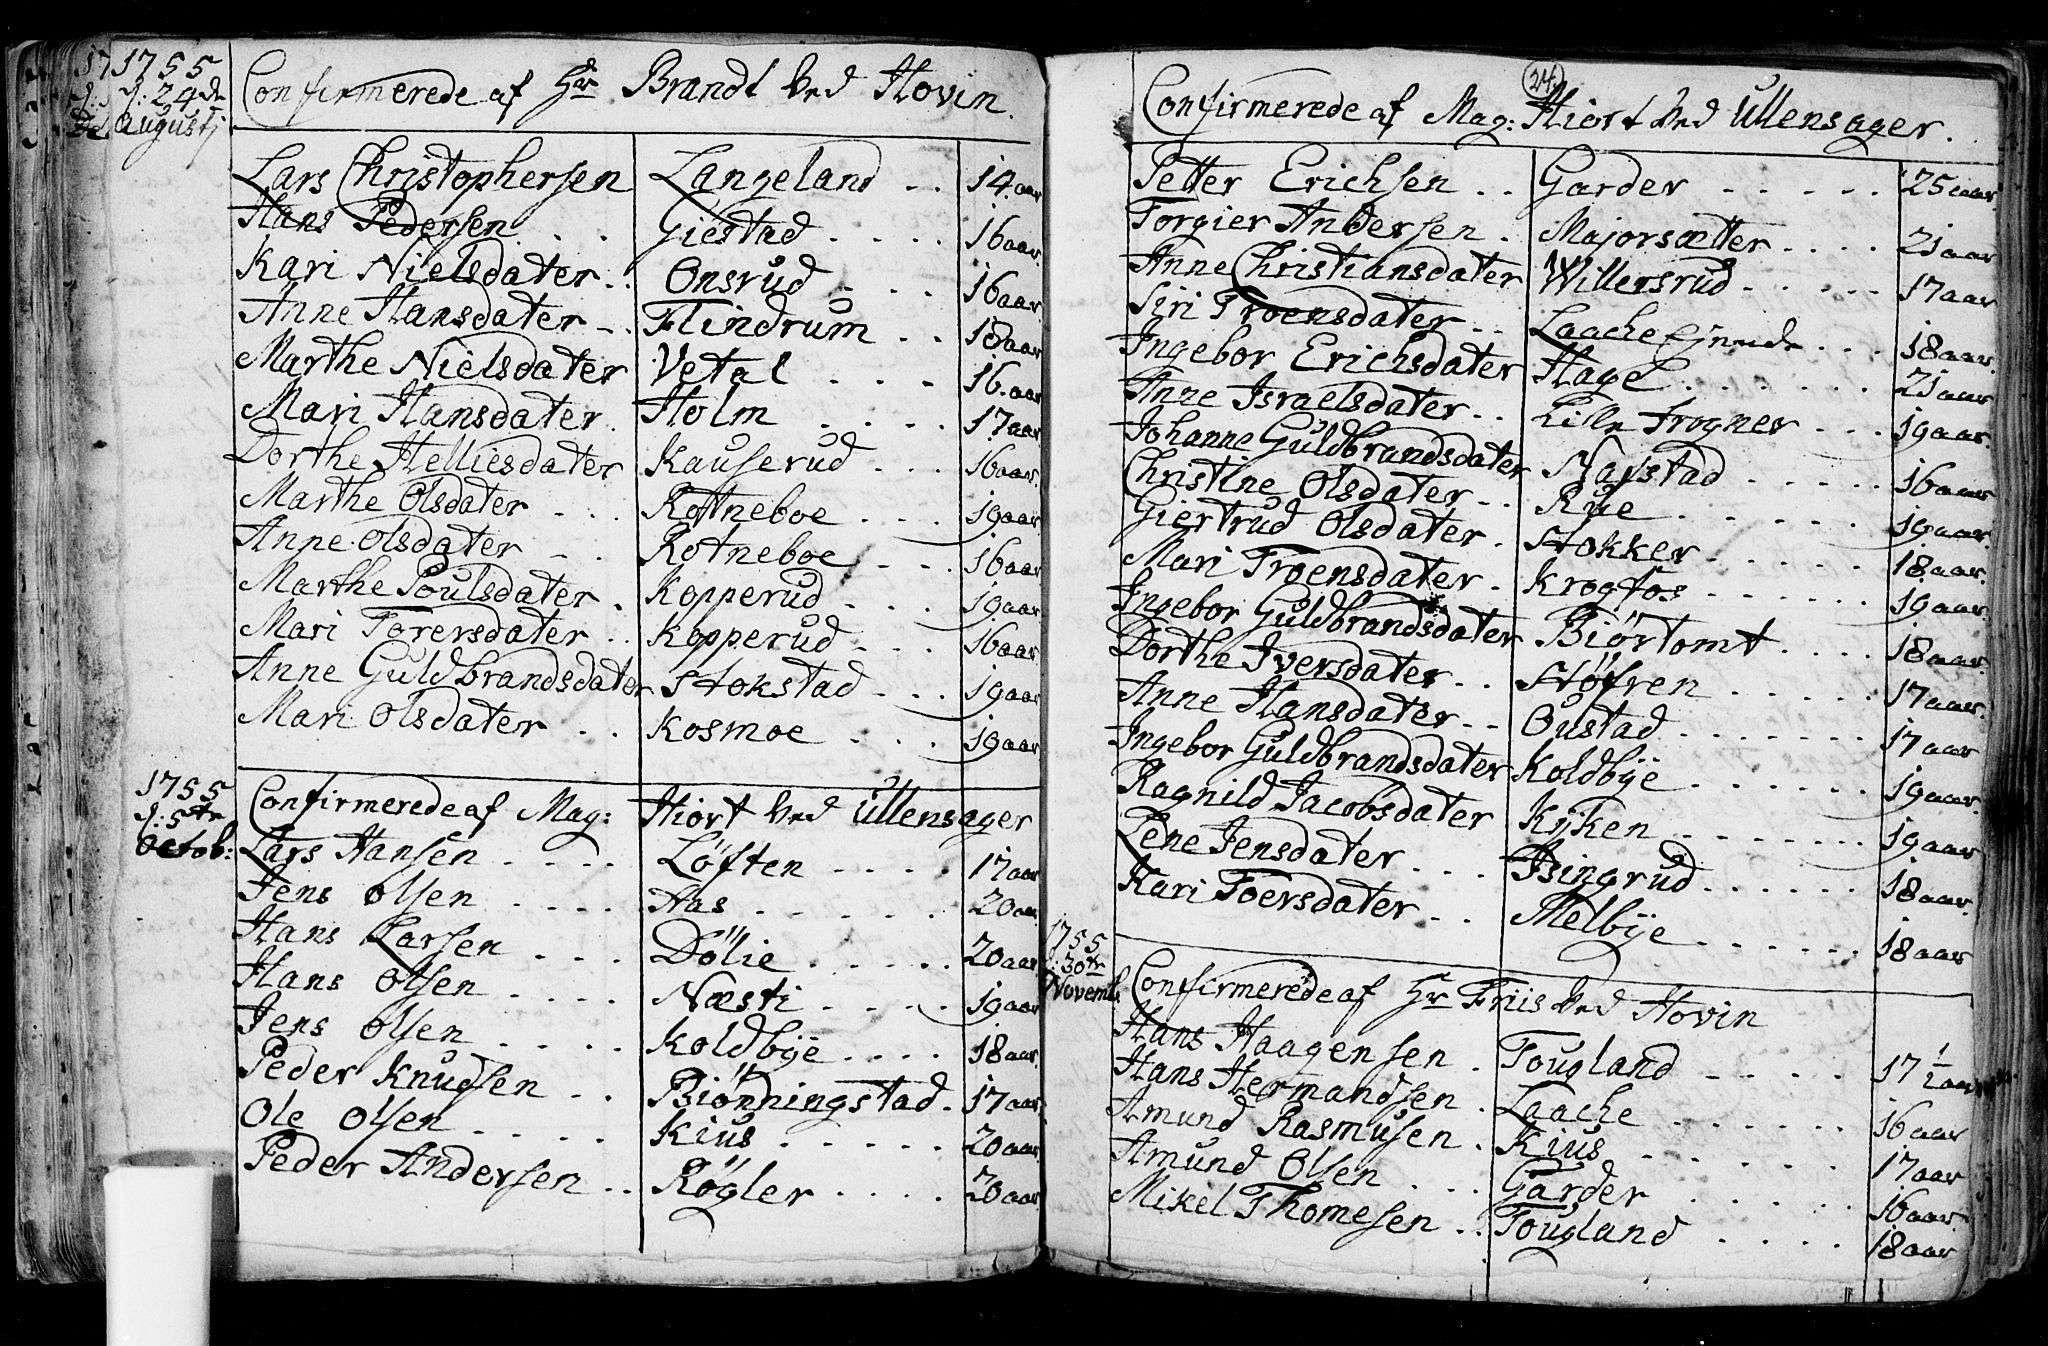 1755
d: 24de
Augustj
Confirmerede af Hr Brandt ved Hovin.
Lars Christophersen Langeland . . 14 aar
Hans Pedersen . . . Giestad . . . . 16 aar.
Kari Nielsdater . . Onsrud . . . . 16 aar
Anne Hansdater . . Flindrum . . 18 aar
Marthe Nielsdater Vetal . . . . 16. aar
Mari Hansdater. Holm . . . . . 17 aar
Dorthe Helliesdater Kauserud . . . 16 aar.
Marthe Olsdater . . . Rotneboe . . . . 19 aar
Anne Olsdater . . . Rotneboe . . . . 16 aar
Marthe Poulsdater . Kopperud . . . . 19 aar
Mari Torersdater . . Kopperud . . . . 16 aar
Anne Guldbrandsdater Stokstad . . . 19 aar
Mari Olsdater . . Kosmoe . . . . 19 aar
1755
d: 5te
Octob:
Confirmerede af Mag: Hiort ved Ullensager
Lars Hansen . . . . Løften . . . . . 17 aar
Jens Olsen . . . . Aas . . . . . . 20 aar
Hans Larsen . . . Dølie . . . . . 20 aar
Hans Olsen . . . . Næsti . . . . 19 aar
Jens Olsen . . . . . Koldbÿe . . . . 18 aar.
Peder Knudsen . . Biønningstad . 17 aar
Ole Olsen . . . . . Kius . . . . . . 20 aar.
Peder Andersen . . Røgler . . . . . 20 aar.
24.
Confirmerede af Mag: Hiort ved Ullensager.
Petter Erichsen . . Garder . . . . . 25 aar.
Torgier Andersen . Majorsætter . . . . 21 aar
Anne Christiansdater Willersrud . . . . . 17 aar
Siri Troensdater . . Laache . . . 18 aar.
Ingebor Erichsdater Hagel . . . . . . 21 aar
Anne Israelsdater . . Lille Frogner . . . 19 aar.
Johanne Guldbrandsdater . . . . . 16 aar
Christine Olsdater . . Rue . . . . . . 19 aar.
Giertrud Olsdater . Stokker . . . . . 18 aar.
Mari Troensdater . Krogfos . . . . . . 19 aar
Ingebor Guldbrandsdater Biørtomt . . . . 18 aar
Dorthe Iversdater . . Støfren . . . . . . 17 aar.
Anne Hansdater . . Oustad . . . . . . . 17 aar
Ingebor Guldbrandsdater Koldbÿe . . . . . 19 aar
Ragnild Jacobsdater Kÿken . . . . . . . 19 aar
Lene Jensdater . . . Asingrud . . . . . . 18 aar.
Kari Toersdater . . Melbÿe . . . . . . 18 aar
1755
d: 30te
Novemb.
Confirmerede af Hr Friis ved Hovin
Hans Haagensen . Tougland . . . . 17 1/2 aar
Hans Hermandsen . Laache . . . . . . 16 aar
Amund Rasmusen . Kius . . . . . . . 17 aar
Amund Olsen . . . Garder . . . . . 16 aar.
Mikel Thomesen . . Tougland . . . . 18 aar